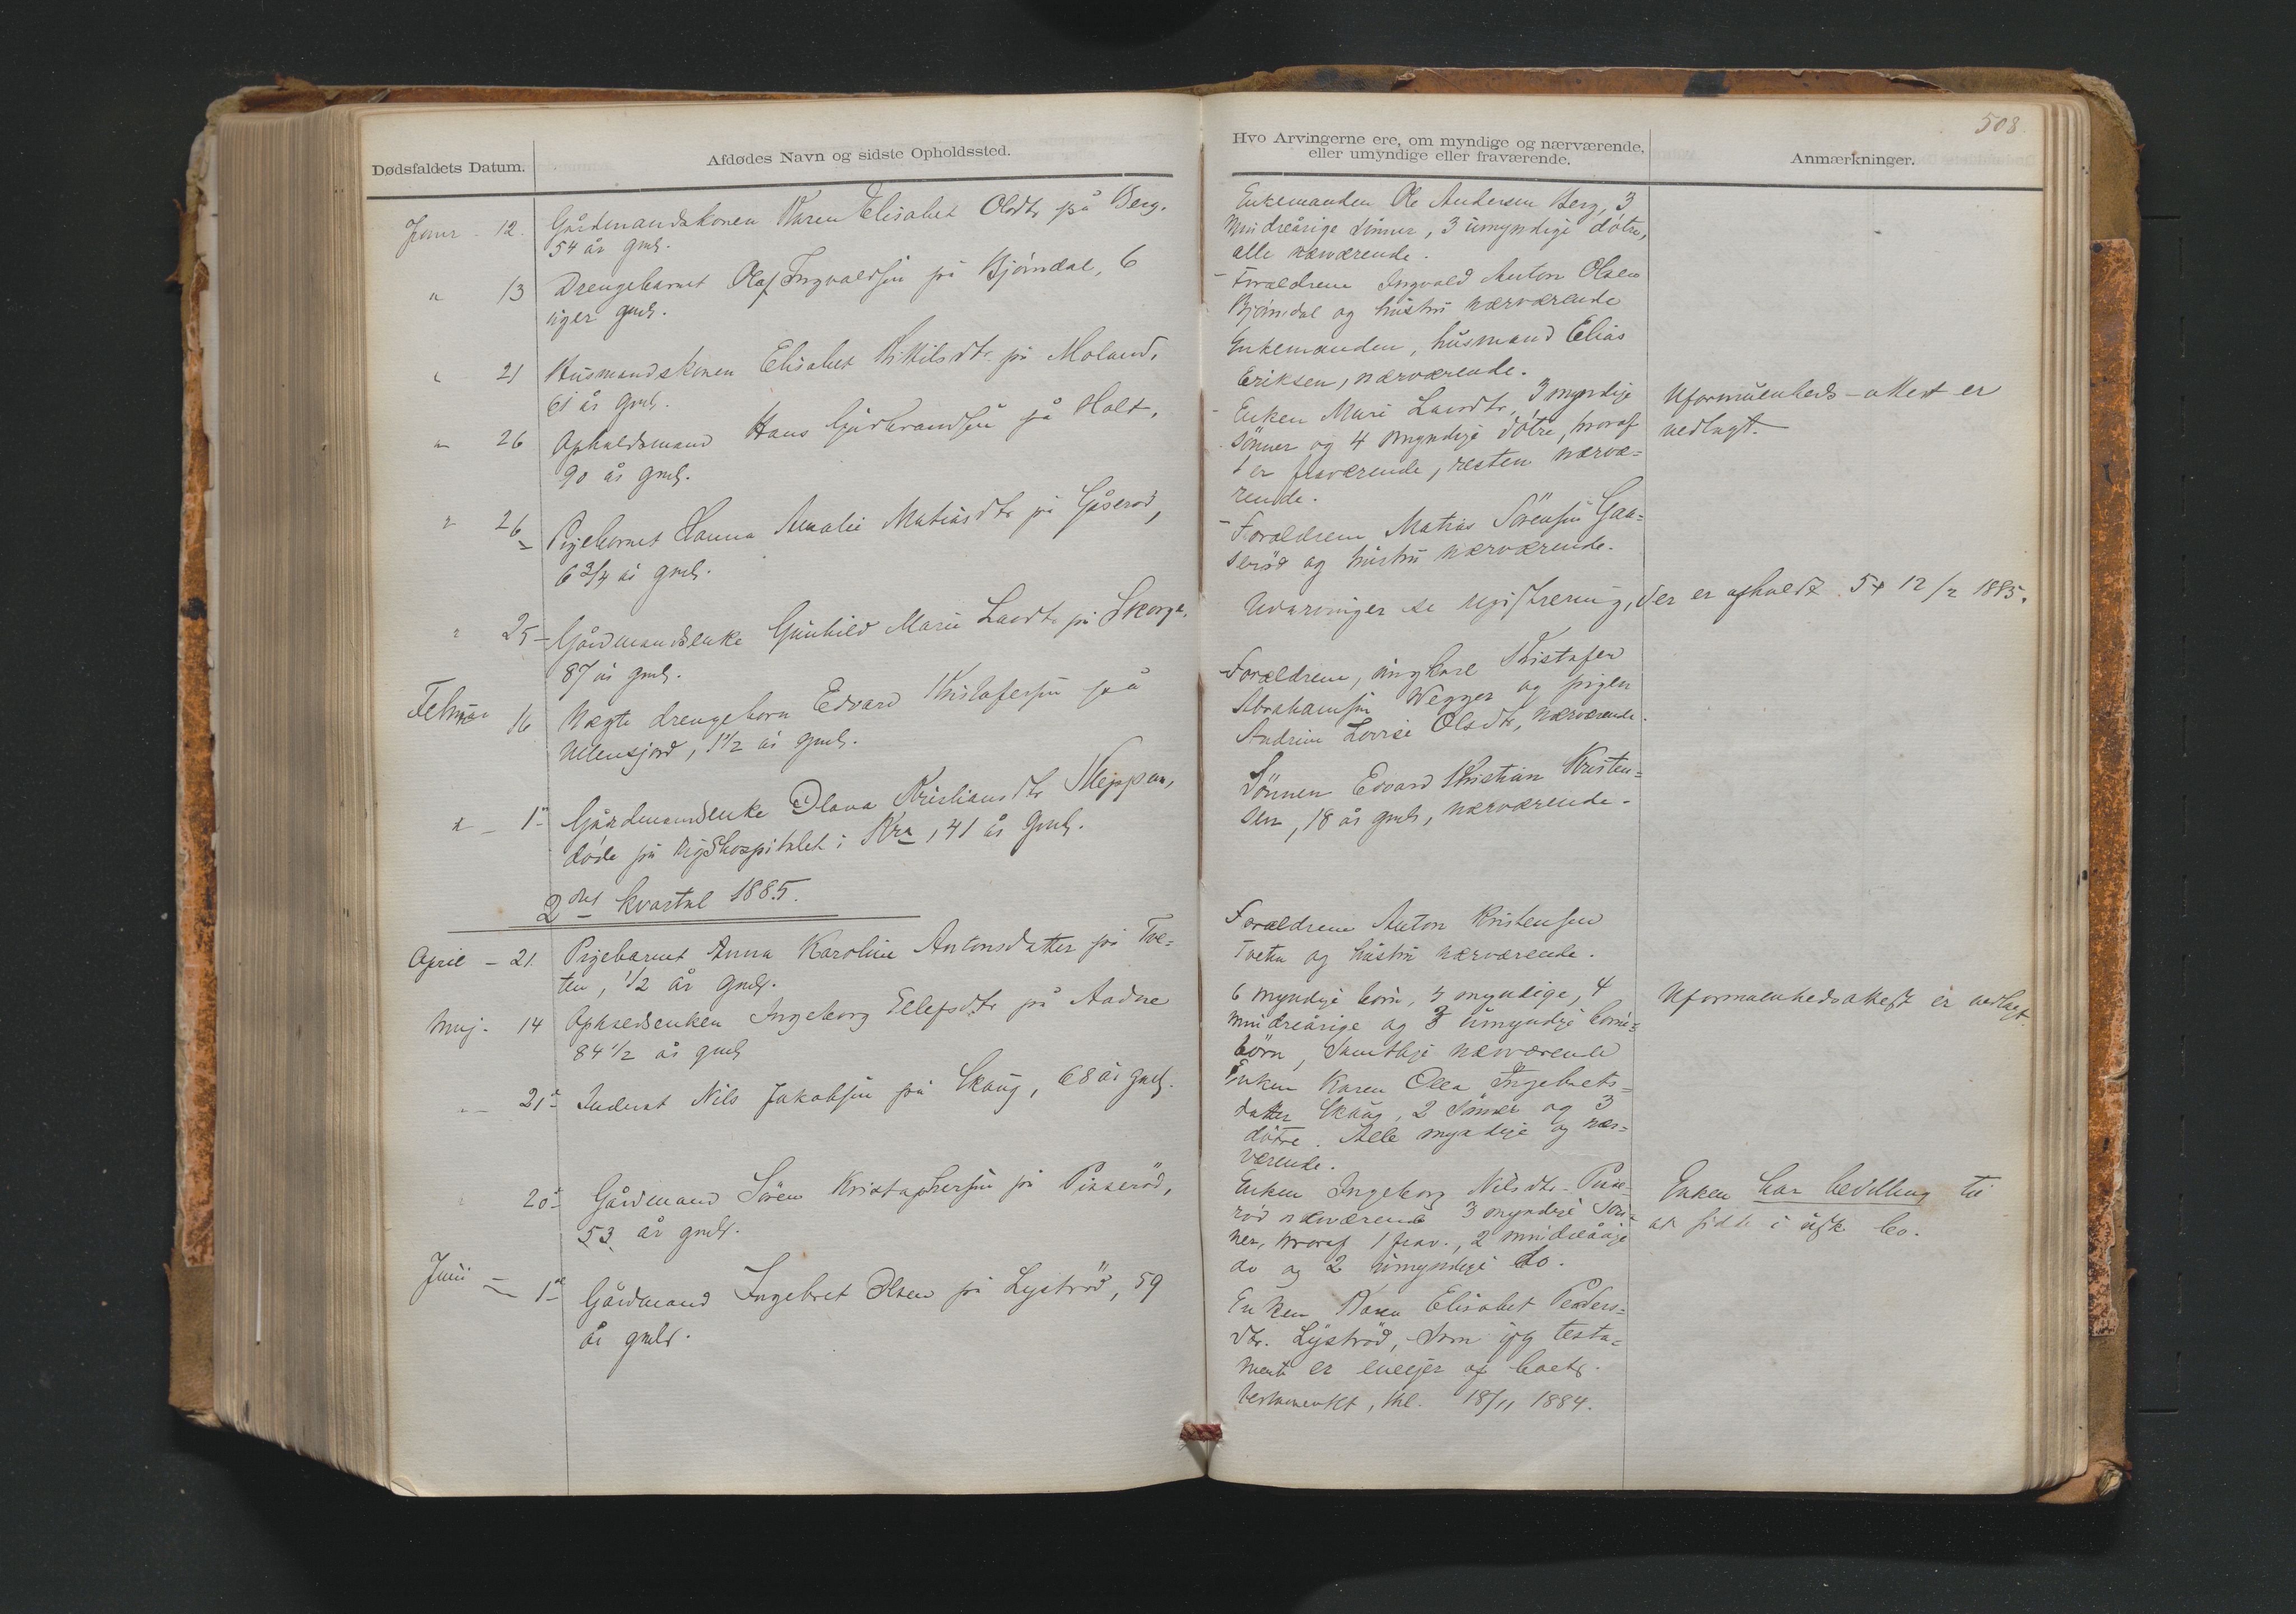 508.
Dødsfaldets Datum.
Afdødes Navn og sidste Opholdssted.
Hvo Arvingerne ere, om myndige og nærværende,
eller umyndige eller fraværende.
Anmærkninger.
Januar - 12. Gårdmandskonen Karen Elisabet Olsdtr på Berg.
54 år gml.
" 13 Drengebarnet Olaf Ingvaldsen på Bjørndal, 6
uger gml.
" 21 Husmandskonen Elisabet Kittilsdtr. på Moland,
61 år gml.
" 26 Opholdsmand Hans Gudbrandsen på Holt,
90 år gml.
" 26 Pigebarnet Hanna Amalie Matiasdtr på Gåserød,
6 3/4 år gml.
" 25 - Gårdmandsenke Gunhild Marie Larsdtr på Skorge.
87 år gml.
Februar 16 Uægte drengebarn Edvard Kristofersen på
Ullensjord, 1 1/2 år gml.
" - 1 Gårdmandsenke Olava Kristiansdtr Kleppan,
døde på Rigshospitalet i Kra, 41 år gml.
2det kvartal 1885.
April - 21. Pigebarnet Anna Karoline Antonsdatter på Tve=
ten, 1/2 år gml.
Maj. 14 Opholdsenken Ingeborg Ellefsdtr på Aadne
84 1/2 år gml
" - 21 - Inderst Nils Jakobsen på Skaug, 68 år gml.
20 - Gårdmand Sören Kristophersen på Pisserød,
53 år gml.
Juni - 1 Gårdmand Ingebret Olsen på Lystrød, 59
år gml.
Enkemanden Ole Andersen Berg, 3
mindreårige sönner, 3 umyndige døtre,
alle nærværende.
- Forældrene Ingvald Anton Olsen
Bjørndal og hustru nærværende
Enkemanden, husmand Elias
Eriksen, nærværende.
- Enken Mari Larsdtr, 3 myndige
sönner og 4 myndige døtre, hvoraf
1 er fraværende, resten nærvæ=
rende.
- Forældrene Matias Sörensen Gaa=
serød og hustru nærværende.
Udarvinger se registrering, der er afholdt 12/2 1885.
- Forældrene, ungkarl Kristofer
Abrahamsen Wegger og pigen
Andrine Lovise Olsdtr, nærværende.
Sönnen Edvard Kristian Kristen=
sen, 18 år gml, nærværende.
Forældrene Anton Kristensen
Tveten og hustru nærværende.
6 myndige börn, myndige, 4
mindreårige og 3 umyndige börne=
börn, samtlige nærværende
Enken Karen Olea Ingebrets=
datter Skaug, 2 sönner og 3
döttre. Alle myndige og nær=
værende.
Enken Ingeborg Nilsdtr
rød nærværende 3 myndige sön=
ner, hvoraf 1 frav., 2 mindreårige
do og 2 umyndige do.
Enken Karen Elisabet Peders=
dtr. Lystrød, som testa=
ment er eneejer af boet.
testamentet, 18/11 1884.
Uformuenheds-attest er
vedlagt.
Uformuenhedsattest er vedlagt.
Enken har bevilling til
at sidde i usk. bo.